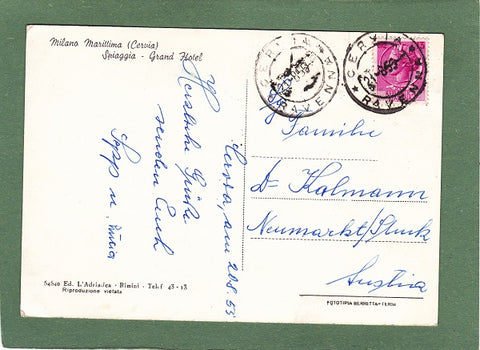 Milano Marittima (Cervia)
Spiaggia - Grand Hotel
CERVIA
RAVENNA
CERVIA
RAVENNA
Cervia, am 20.8.53
Herzliche Grüße
senden Euch
Sepp u.
Familie
Dr Kalmann
Neumarkt/Stmk
Austria
54840 Ed. L'Adriatica - Rimini - Telef 43-13
Riproduzione vietata
FOTOTIPIA BERRETTA - TERNI